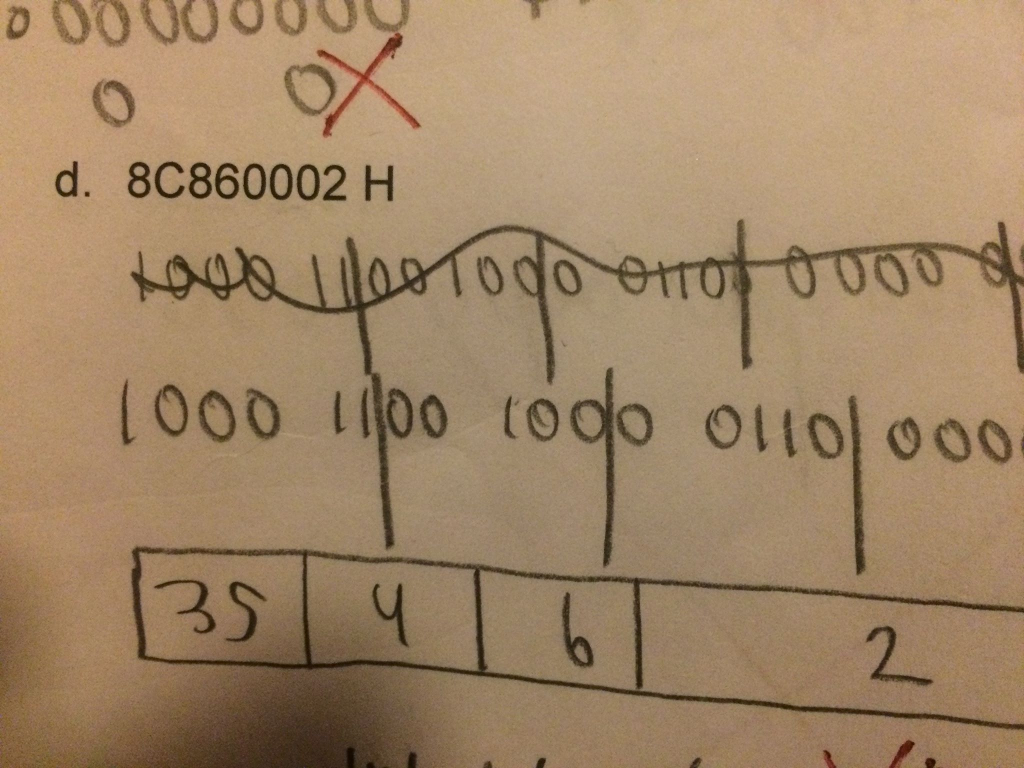 0 00000000
0 0
d. 8C860002 H
1000 1100 1000 0110 0000 0
1000 1100 1000 0110 000
35 4 6 2